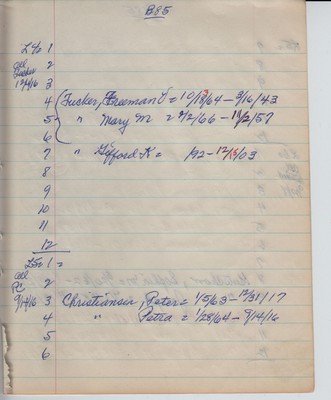 B85
L4= 1
all 2
Tucker
12/4/16 3
4 Tucker, Freeman V = 10/13/64 - 3/16/43
5 " Mary M = 2/2/66 - 11/2/57
6
7 " Gifford K = /92 - 12/15/03
8
9
10
11
12
L5= 1 =
all 2
PC
9/14/16 3 Christianser, Peter = 1/5/63 - 12/31/17
4 " Petra = 1/28/64 - 9/14/16
5
6